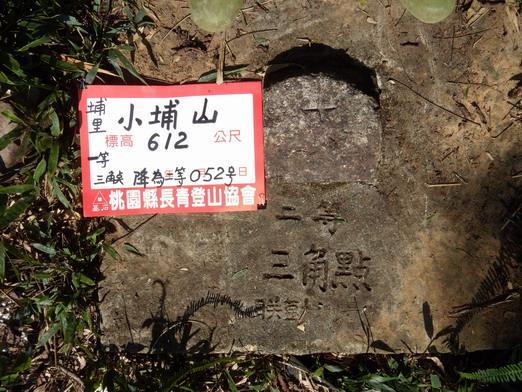 埔里
小埔山
標高 612 公尺
一等
三角點 降為二等052号
基石
桃園縣長青登山協會
二等
三角點
聯勤